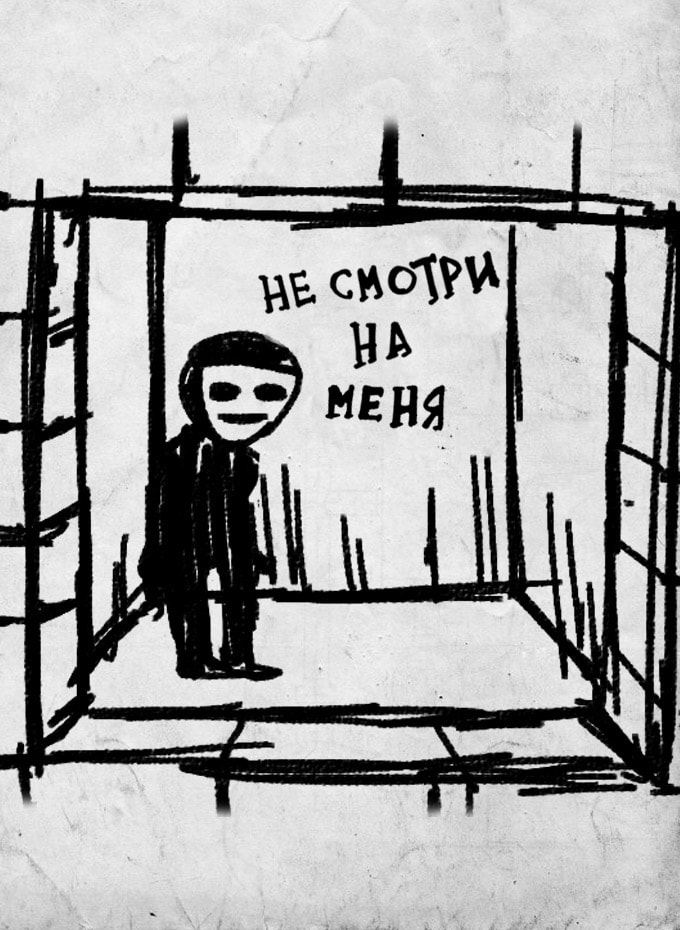 НЕ СМОТРИ
НА
МЕНЯ